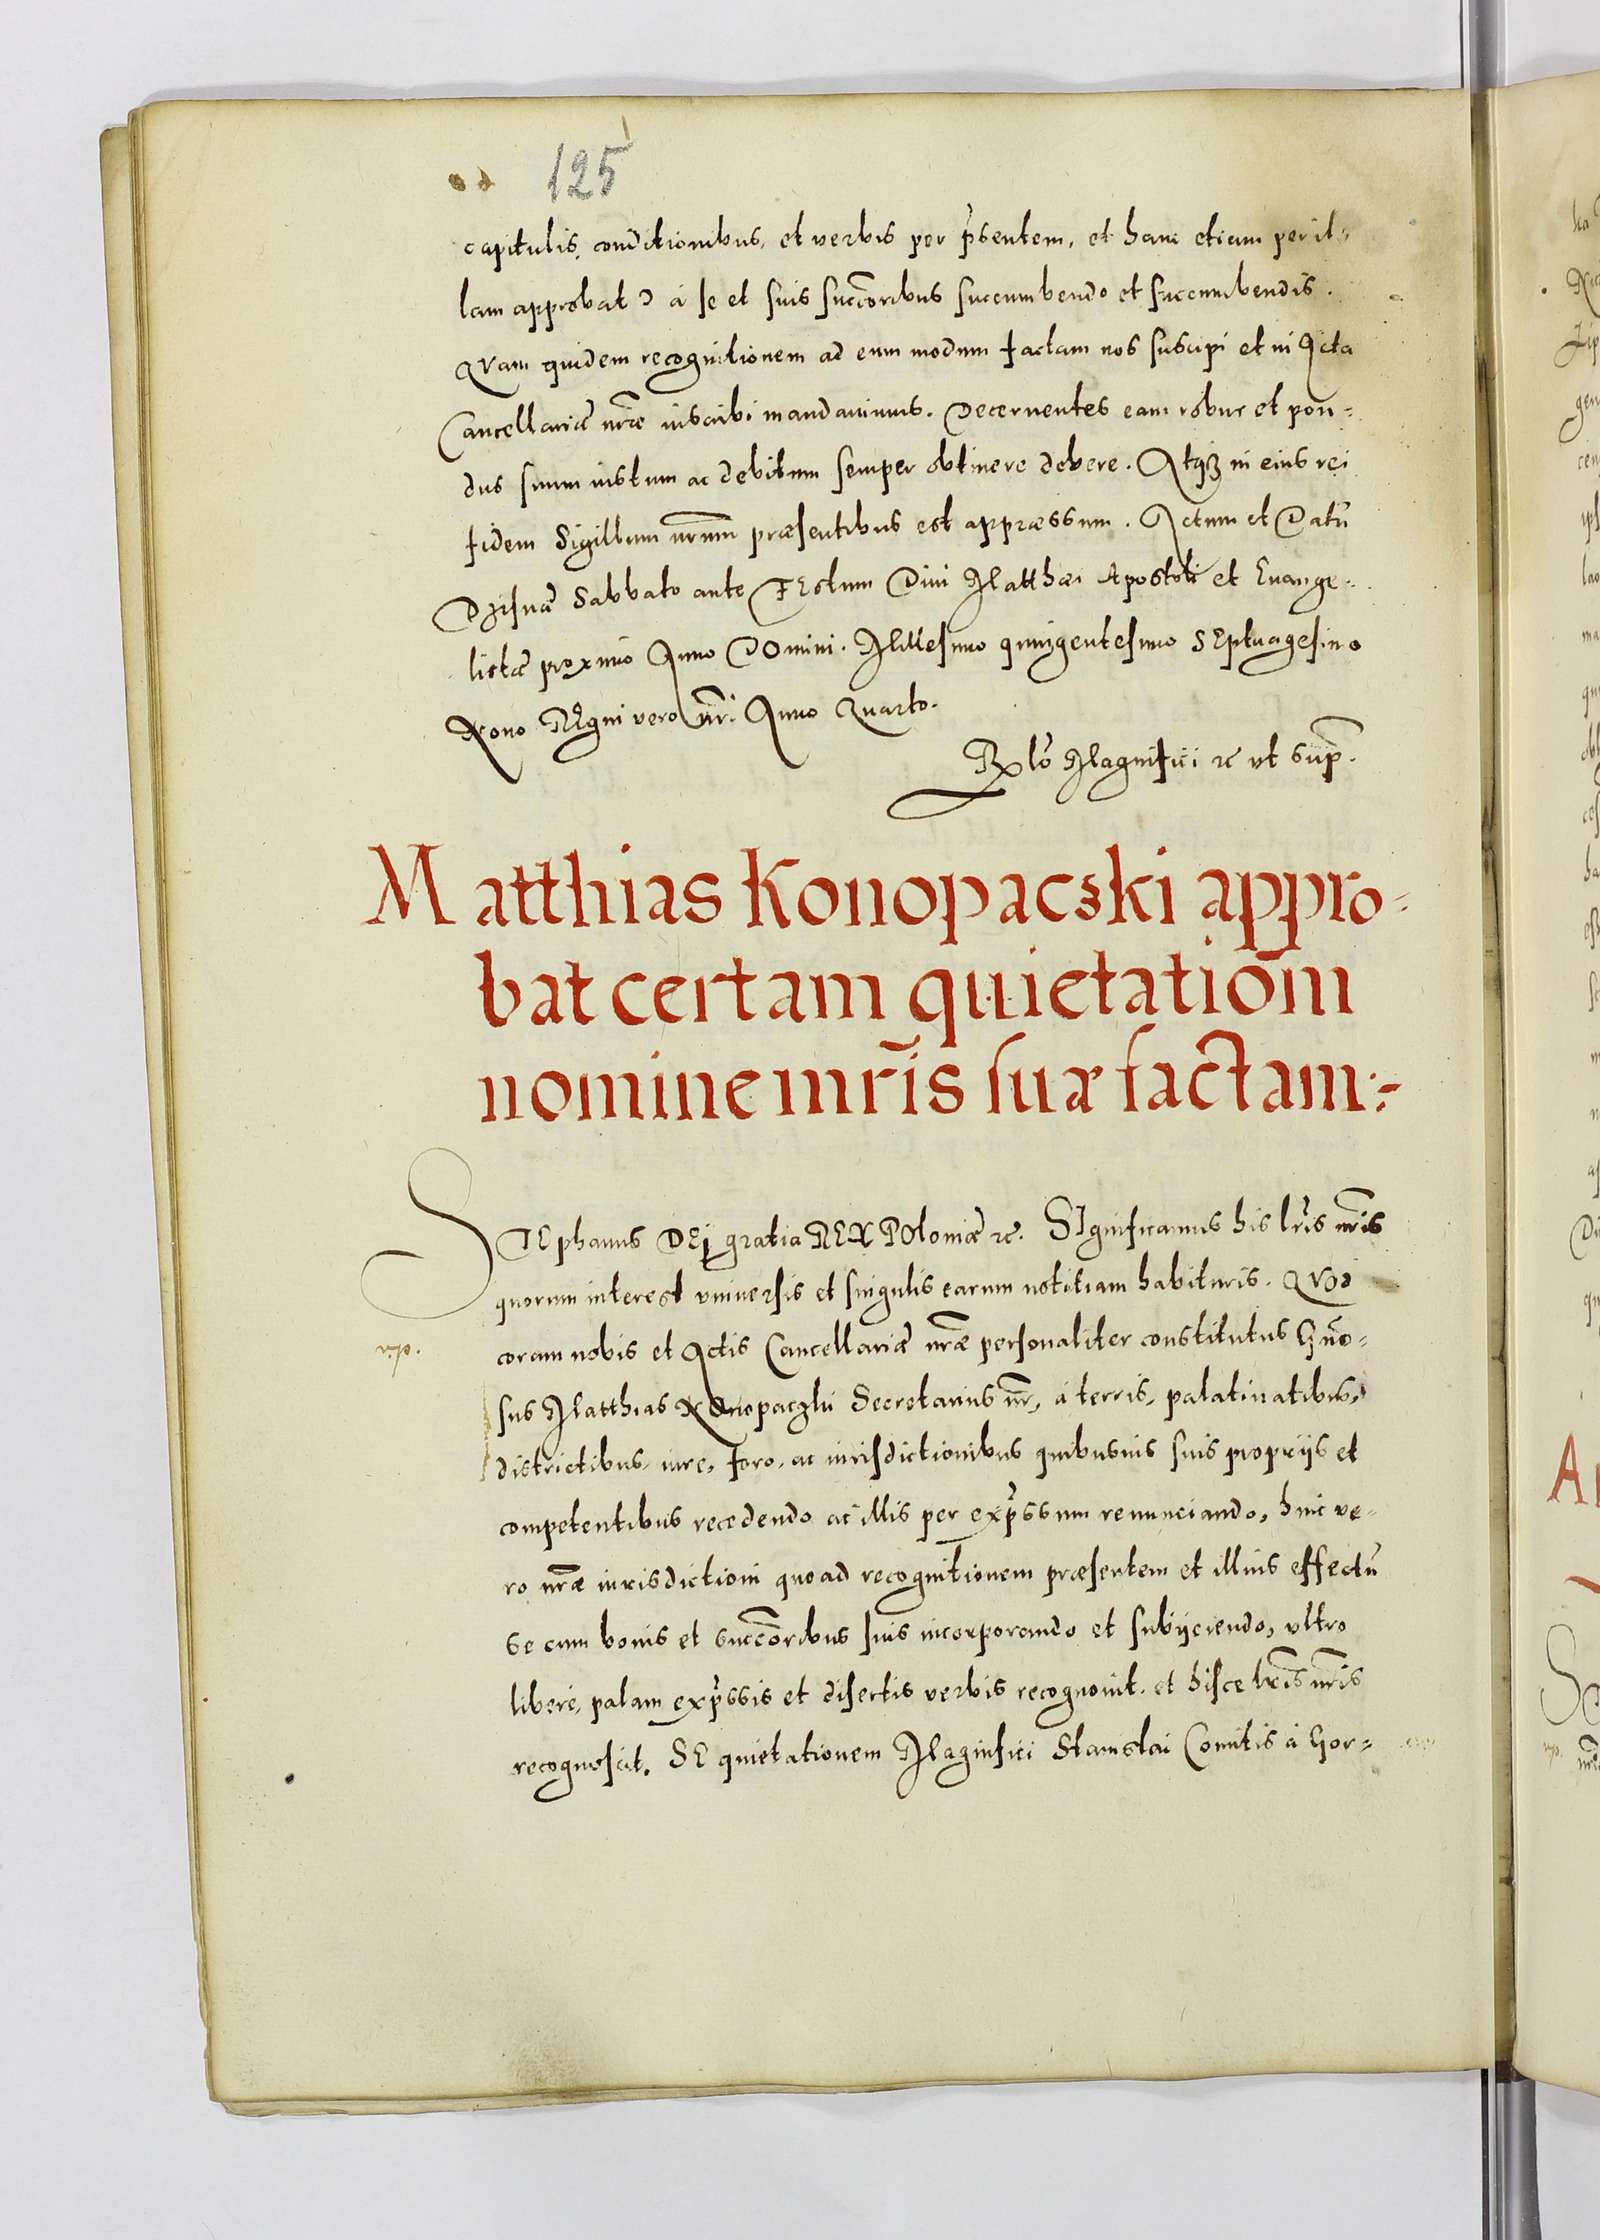 125
capitulis, conditionibus, et verbis per p̃sentem, et hanc etiam per il-
lam approbat) à se et suis succ̃oribus succumbendo et succumbendis.
Quam quidem recognitionem ad eum modum factam nos suscipi et in Acta
Cancellariæ nr̃æ inscribi mandavimus. Decernentes eam robur et pon-
dus suum iustum ac debitum semper obtinere debere. Atqȝ in eius rei
fidem Sigillum nr̃um præsentibus est appræssum. Actum et Datũ
Dzisnæ Sabbato ante FEstum Divi Matthæi Apostoli et Evange-
listæ proximo Anno DOmini. MIllesimo quingentesimo SEptuagesimo
Nono REgni vero nr̃i Anno Quarto.
Rlõ Magnifici ꝛc ut sup̃.
Matthias Konopaczki appro-
bat certam quietatiom̃
nomine mr̃is suæ factam:-
STEphanus DEj gratia REX POloniæ ꝛc. SIgnificamus his lr̃is nr̃is
quorum interest universis et singulis earum notitiam habituris. QUod
coram nobis et Actis Cancellariæ nr̃æ personaliter constitutus Gño-
sus Matthias KOnopaczki Secretarius nr̃, à terris, palatinatibus,
districtibus, iure, foro, ac iurisdictionibus quibusuis suis proprijs et
competentibus recedendo ac illis per exp̃ssum renunciando, huic ve-
ro nr̃æ iurisdictioni quoad recognitionem præsentem et illius effectũ
se cum bonis et succ̃oribus suis incorporando et subijciendo, ultro
liberè, palam exp̃ssis et disertis verbis recognovit. et hisce lr̃is nr̃is
recognoscit. SE quietationem Magnifici Stanislai Comitis à Gor-